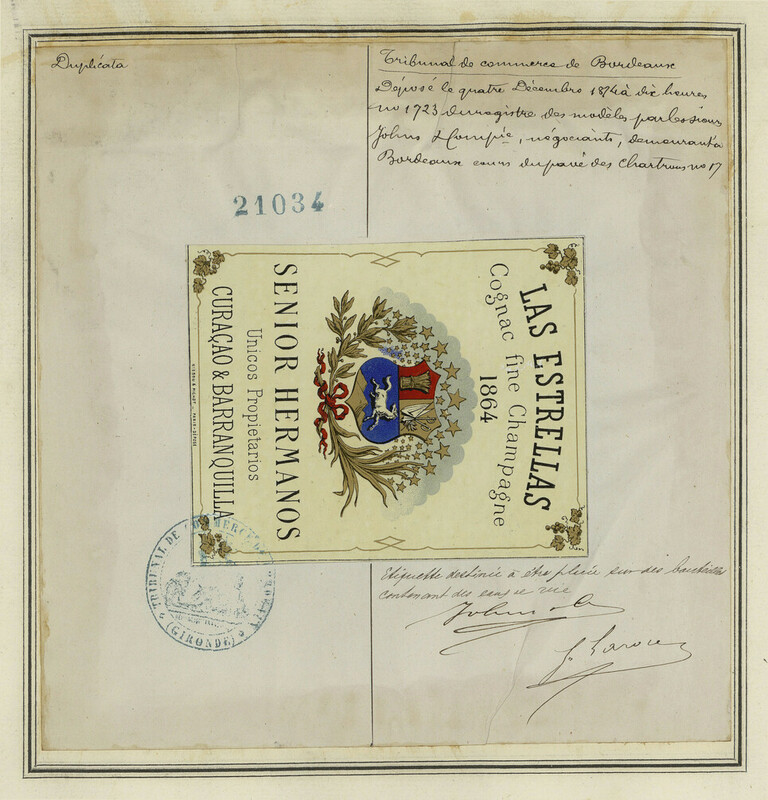 Duplicata
Tribunal de commerce de Bordeaux
Déposé le quatre Décembre 1874 à dix heures
no 1723 du registre des modèles par Messieurs
Johns & Compie, négociants, demeurant à
Bordeaux cours du pavé des Chartrons no 17
21034
LAS ESTRELLAS
Cognac fine Champagne
1864
SENIOR HERMANOS
Unicos Propietarios
CURAÇAO & BARRANQUILLA
TRIBUNAL DE COMMERCE
(GIRONDE)
Etiquette destinée à être placée sur des bouteilles
contenant des eaux de vie
Johns & Co